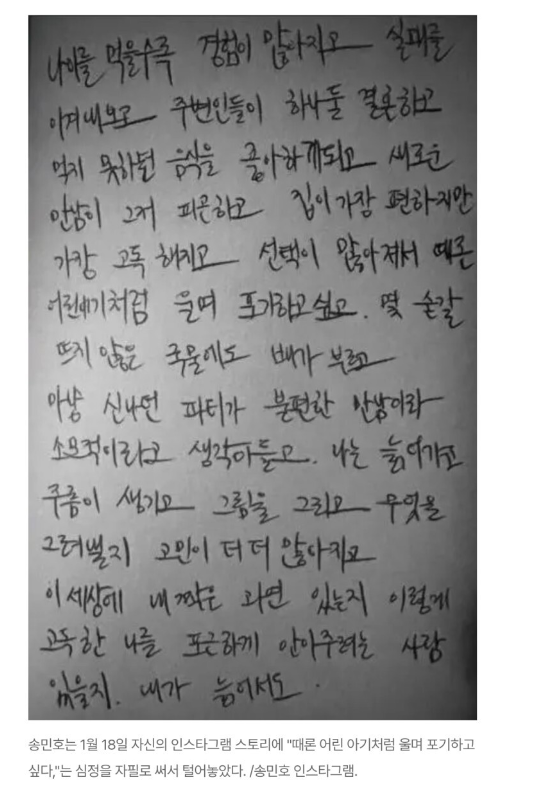 나이를 먹을수록 경험이 많아지고 실패를
이겨내보고 주변인들이 하나둘 결혼하고
먹지 못하던 음식을 좋아하게되고 새로운
만남이 그저 피곤하고 집이 가장 편하지만
가장 고독 해지고 선택이 많아져서 때론
어린애기처럼 울며 포기하고싶고. 몇 숟갈
뜨지 않은 국물에도 배가 부르고
마냥 신나던 파티가 불편한 만남이라
소모적이라고 생각이들고. 나는 늙어가고
주름이 생기고 그림을 그리고 무엇을
그려낼지 고민이 더 더 많아지고
이 세상에 내 짝은 과연 있는지 이렇게
고독한 나를 포근하게 안아주려는 사람
있을지. 내가 늙어서도.
송민호는 1월 18일 자신의 인스타그램 스토리에 "때론 어린 아기처럼 울며 포기하고
싶다,"는 심정을 자필로 써서 털어놓았다. /송민호 인스타그램.